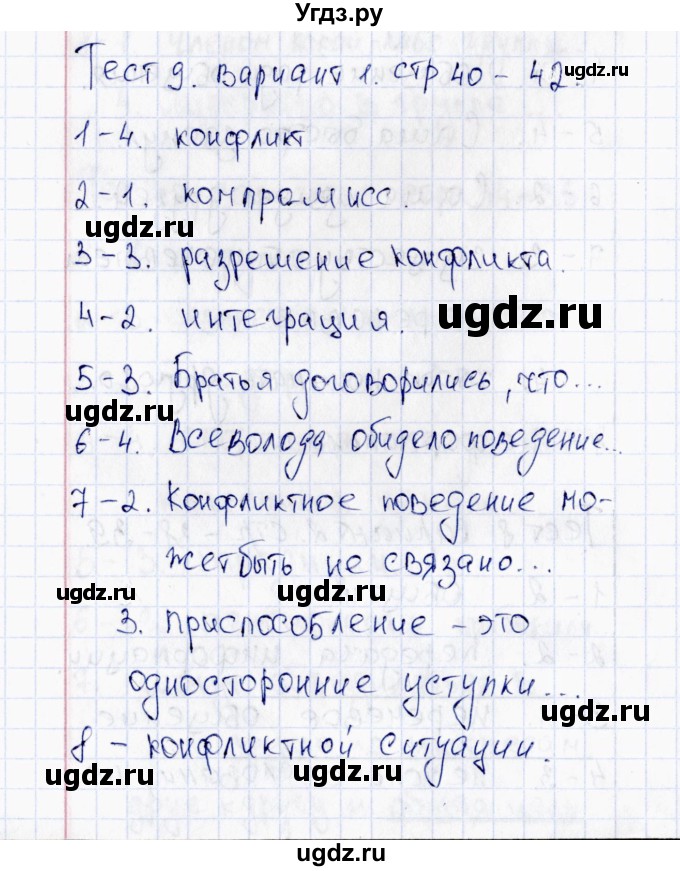 Угдз.ру
Тест 9. Вариант 1. стр 40 - 42.
ugdz.ru
1-4. конфликт
2-1. компромисс.
ugdz.ru
ugdz.ru
3-3. разрешение конфликта.
4-2. интеграция.
ugdz.ru
5-3. Братья договорились, что...
ugdz.ru
6-4. Всеволода обидело поведение...
7-2. Конфликтное поведение мо-
жет быть не связано...
ugdz.ru
ugdz.ru
3. приспособление - это
односторонние уступки...
ugdz.ru
8 - конфликтной ситуации.
ugdz.ru
ugdz.ru
ugdz.ru